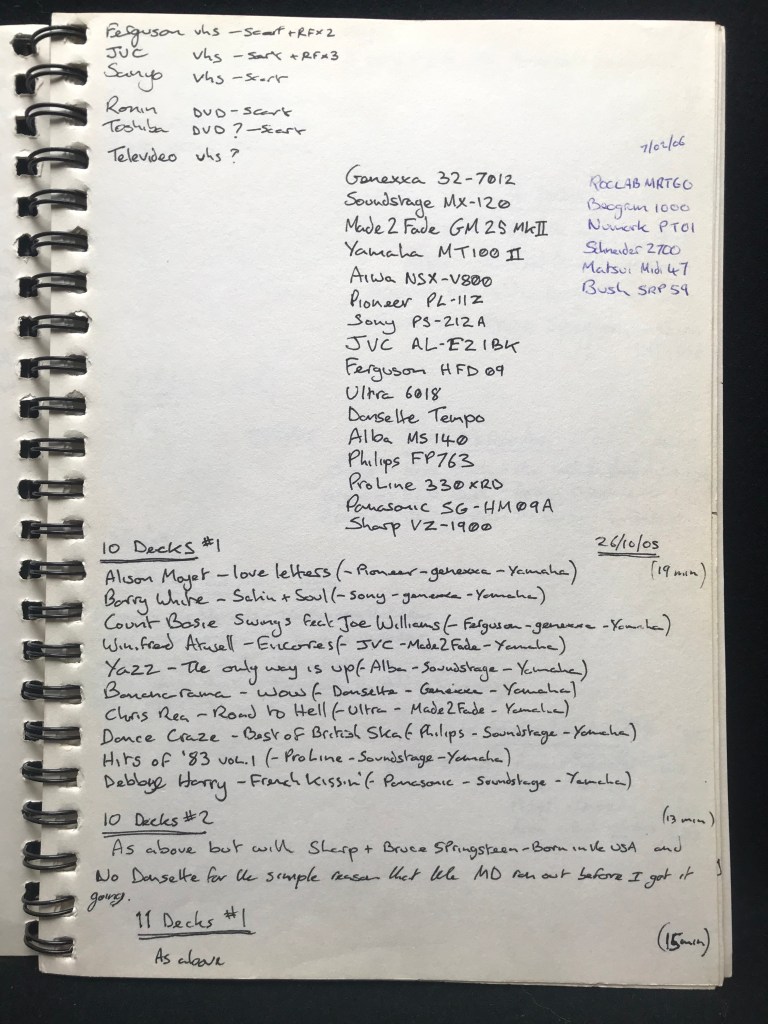 Ferguson vhs - scart + RF x 2
JVC vhs - sart + RF x 3
Sanyo vhs - scart
Ronin DVD - scart
Toshiba DVD ? - scart
Televideo vhs ?
7/02/06
Genexxa 32-7012
Soundstage MX-120
Made 2 Fade GM 25 MkII
Yamaha MT100 II
Aiwa NSX-V800
Pioneer PL-11Z
Sony PS-212A
JVC AL-E21BK
Ferguson HFD09
Ultra 6018
Dansette Tempo
Alba MS140
Philips FP763
ProLine 330XRD
Panasonic SG-HM09A
Sharp VZ-1900
ROCLAB MRT60
Beogram 1000
Numark PT01
Schneider 2700
Matsui Midi 47
Bush SRP59
10 Decks #1
26/10/05
Alison Moyet - love letters (- Pioneer - genexxa - Yamaha) (19 min)
Barry White - Satin + Soul (- sony - genexxa - Yamaha)
Count Basie Swings feat Joe Williams (- Ferguson - genexxa - Yamaha)
Winifred Atwell - Encores (- JVC - Made2Fade - Yamaha)
Yazz - The only way is up (- Alba - Soundstage - Yamaha)
Bananarama - WOW (- Dansette - Genexxa - Yamaha)
Chris Rea - Road to Hell (- Ultra - Made2Fade - Yamaha)
Dance Craze - Best of British Ska (- Philips - Soundstage - Yamaha)
Hits of '83 vol.1 (- ProLine - Soundstage - Yamaha)
Debbye Harry - French Kissin' (- Panasonic - Soundstage - Yamaha)
10 Decks #2 (13 min)
As above but with Sharp + Bruce Springsteen - Born in the USA and
No Dansette for the simple reason that the MD ran out before I got it
going.
11 Decks #1
(15 min)
As above